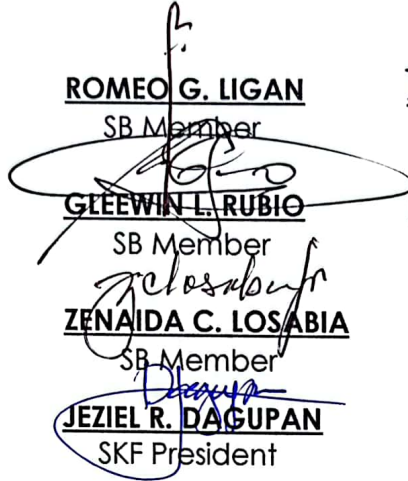 ROMEO G. LIGAN
SB Member
GLEEWIN L. RUBIO
SB Member
ZENAIDA C. LOSABIA
SB Member
JEZIEL R. DAGUPAN
SKF President